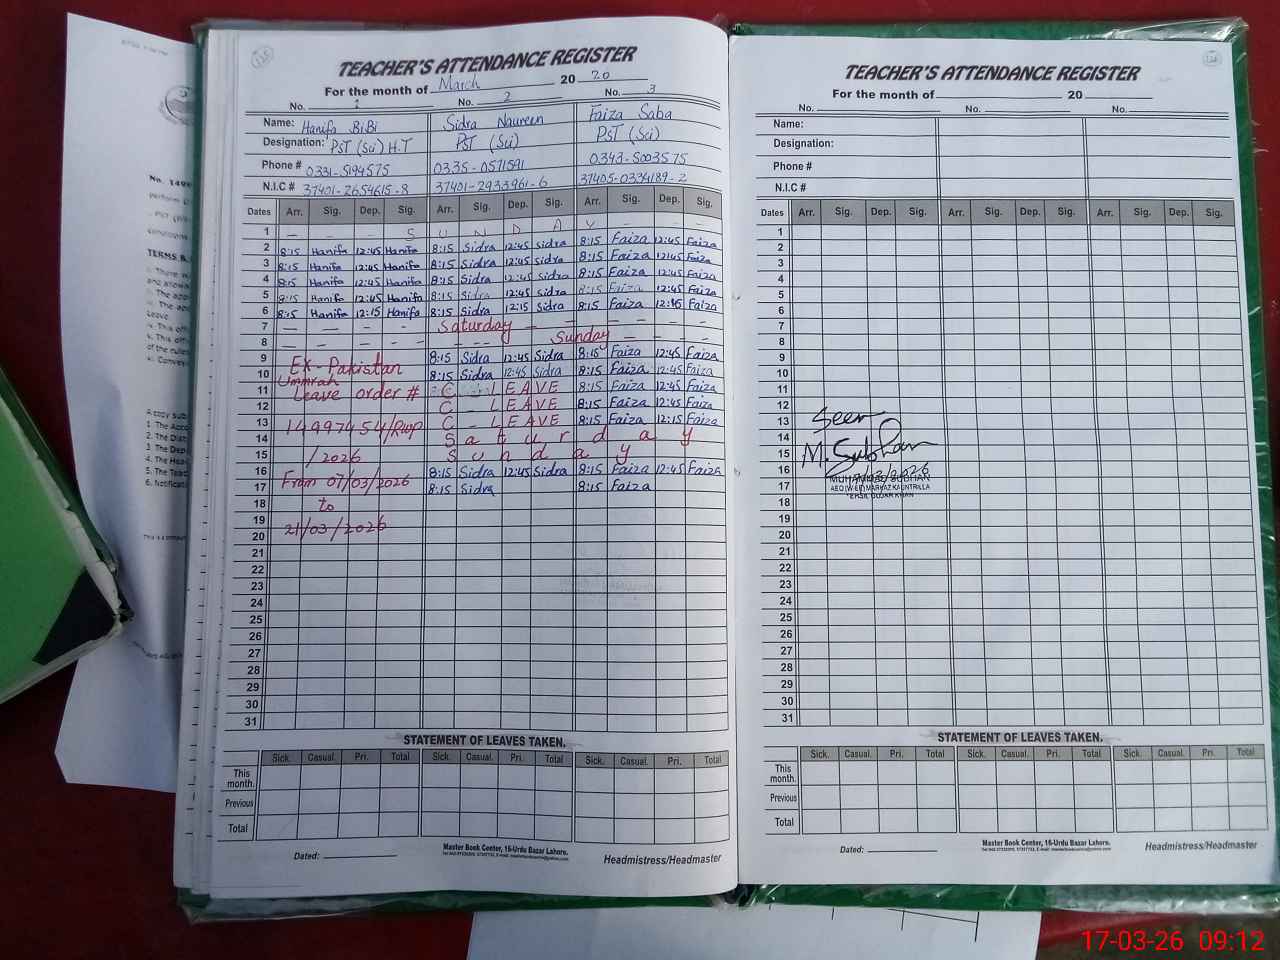 TEACHER'S ATTENDANCE REGISTER
For the month of March 20 20
No. 1 No. 2 No. 3
Name: Hanifa BiBi Sidra Naureen Faiza Saba
Designation: PST (Sci) H.T PST (Sci) PST (Sci)
Phone # 0331-5194575 0335-0571591 0343-5003575
N.I.C # 37401-2654615-8 37401-2933961-6 37405-0334189-2
Dates Arr. Sig. Dep. Sig. Arr. Sig. Dep. Sig. Arr. Sig. Dep. Sig.
1 – – – S U N D A Y – – –
2 8:15 Hanifa 12:45 Hanifa 8:15 Sidra 12:45 Sidra 8:15 Faiza 12:45 Faiza
3 8:15 Hanifa 12:45 Hanifa 8:15 Sidra 12:45 Sidra 8:15 Faiza 12:45 Faiza
4 8:15 Hanifa 12:45 Hanifa 8:15 Sidra 12:45 Sidra 8:15 Faiza 12:45 Faiza
5 8:15 Hanifa 12:45 Hanifa 8:15 Sidra 12:45 Sidra 8:15 Faiza 12:45 Faiza
6 8:15 Hanifa 12:15 Hanifa 8:15 Sidra 12:15 Sidra 8:15 Faiza 12:15 Faiza
7 – – – – Saturday – – – – –
8 – – – – – – Sunday – – – –
9 8:15 Sidra 12:45 Sidra 8:15 Faiza 12:45 Faiza
10 EX-Pakistan 8:15 Sidra 12:45 Sidra 8:15 Faiza 12:45 Faiza
Ummrah
11 Leave order # C - LEAVE 8:15 Faiza 12:45 Faiza
12 C - LEAVE 8:15 Faiza 12:45 Faiza
13 14997454/RWP C - LEAVE 8:15 Faiza 12:15 Faiza
14 S a t u r d a y
15 /2026 S u n d a y
16 From 07/03/2026 8:15 Sidra 12:45 Sidra 8:15 Faiza 12:45 Faiza
17 8:15 Sidra 8:15 Faiza
18 to
19 21/03/2026
20
21
22
23
24
25
26
27
28
29
30
31
STATEMENT OF LEAVES TAKEN.
Sick. Casual. Pri. Total Sick. Casual. Pri. Total Sick. Casual. Pri. Total
This month.
Previous
Total
Master Book Center, 16-Urdu Bazar Lahore.
Dated: Headmistress/Headmaster
TEACHER'S ATTENDANCE REGISTER
For the month of 20
No. No. No.
Name:
Designation:
Phone #
N.I.C #
Dates Arr. Sig. Dep. Sig. Arr. Sig. Dep. Sig. Arr. Sig. Dep. Sig.
1
2
3
4
5
6
7
8
9
10
11
12
13 Seen
14
15 M. Subhan
16
MUHAMMAD SUBHAN
17 AEO (W-EE) MARKAZ KAUNTRILLA
TEHSIL GUJAR KHAN
18
19
20
21
22
23
24
25
26
27
28
29
30
31
STATEMENT OF LEAVES TAKEN.
Sick. Casual. Pri. Total Sick. Casual. Pri. Total Sick. Casual. Pri. Total
This month.
Previous
Total
Master Book Center, 16-Urdu Bazar Lahore.
Dated: Headmistress/Headmaster
17-03-26 09:12